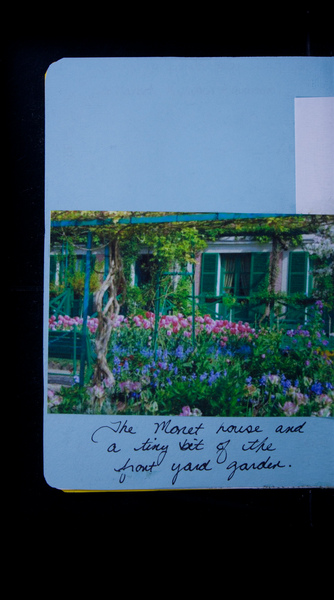 The Monet house and
a tiny bit of the
front yard garden.